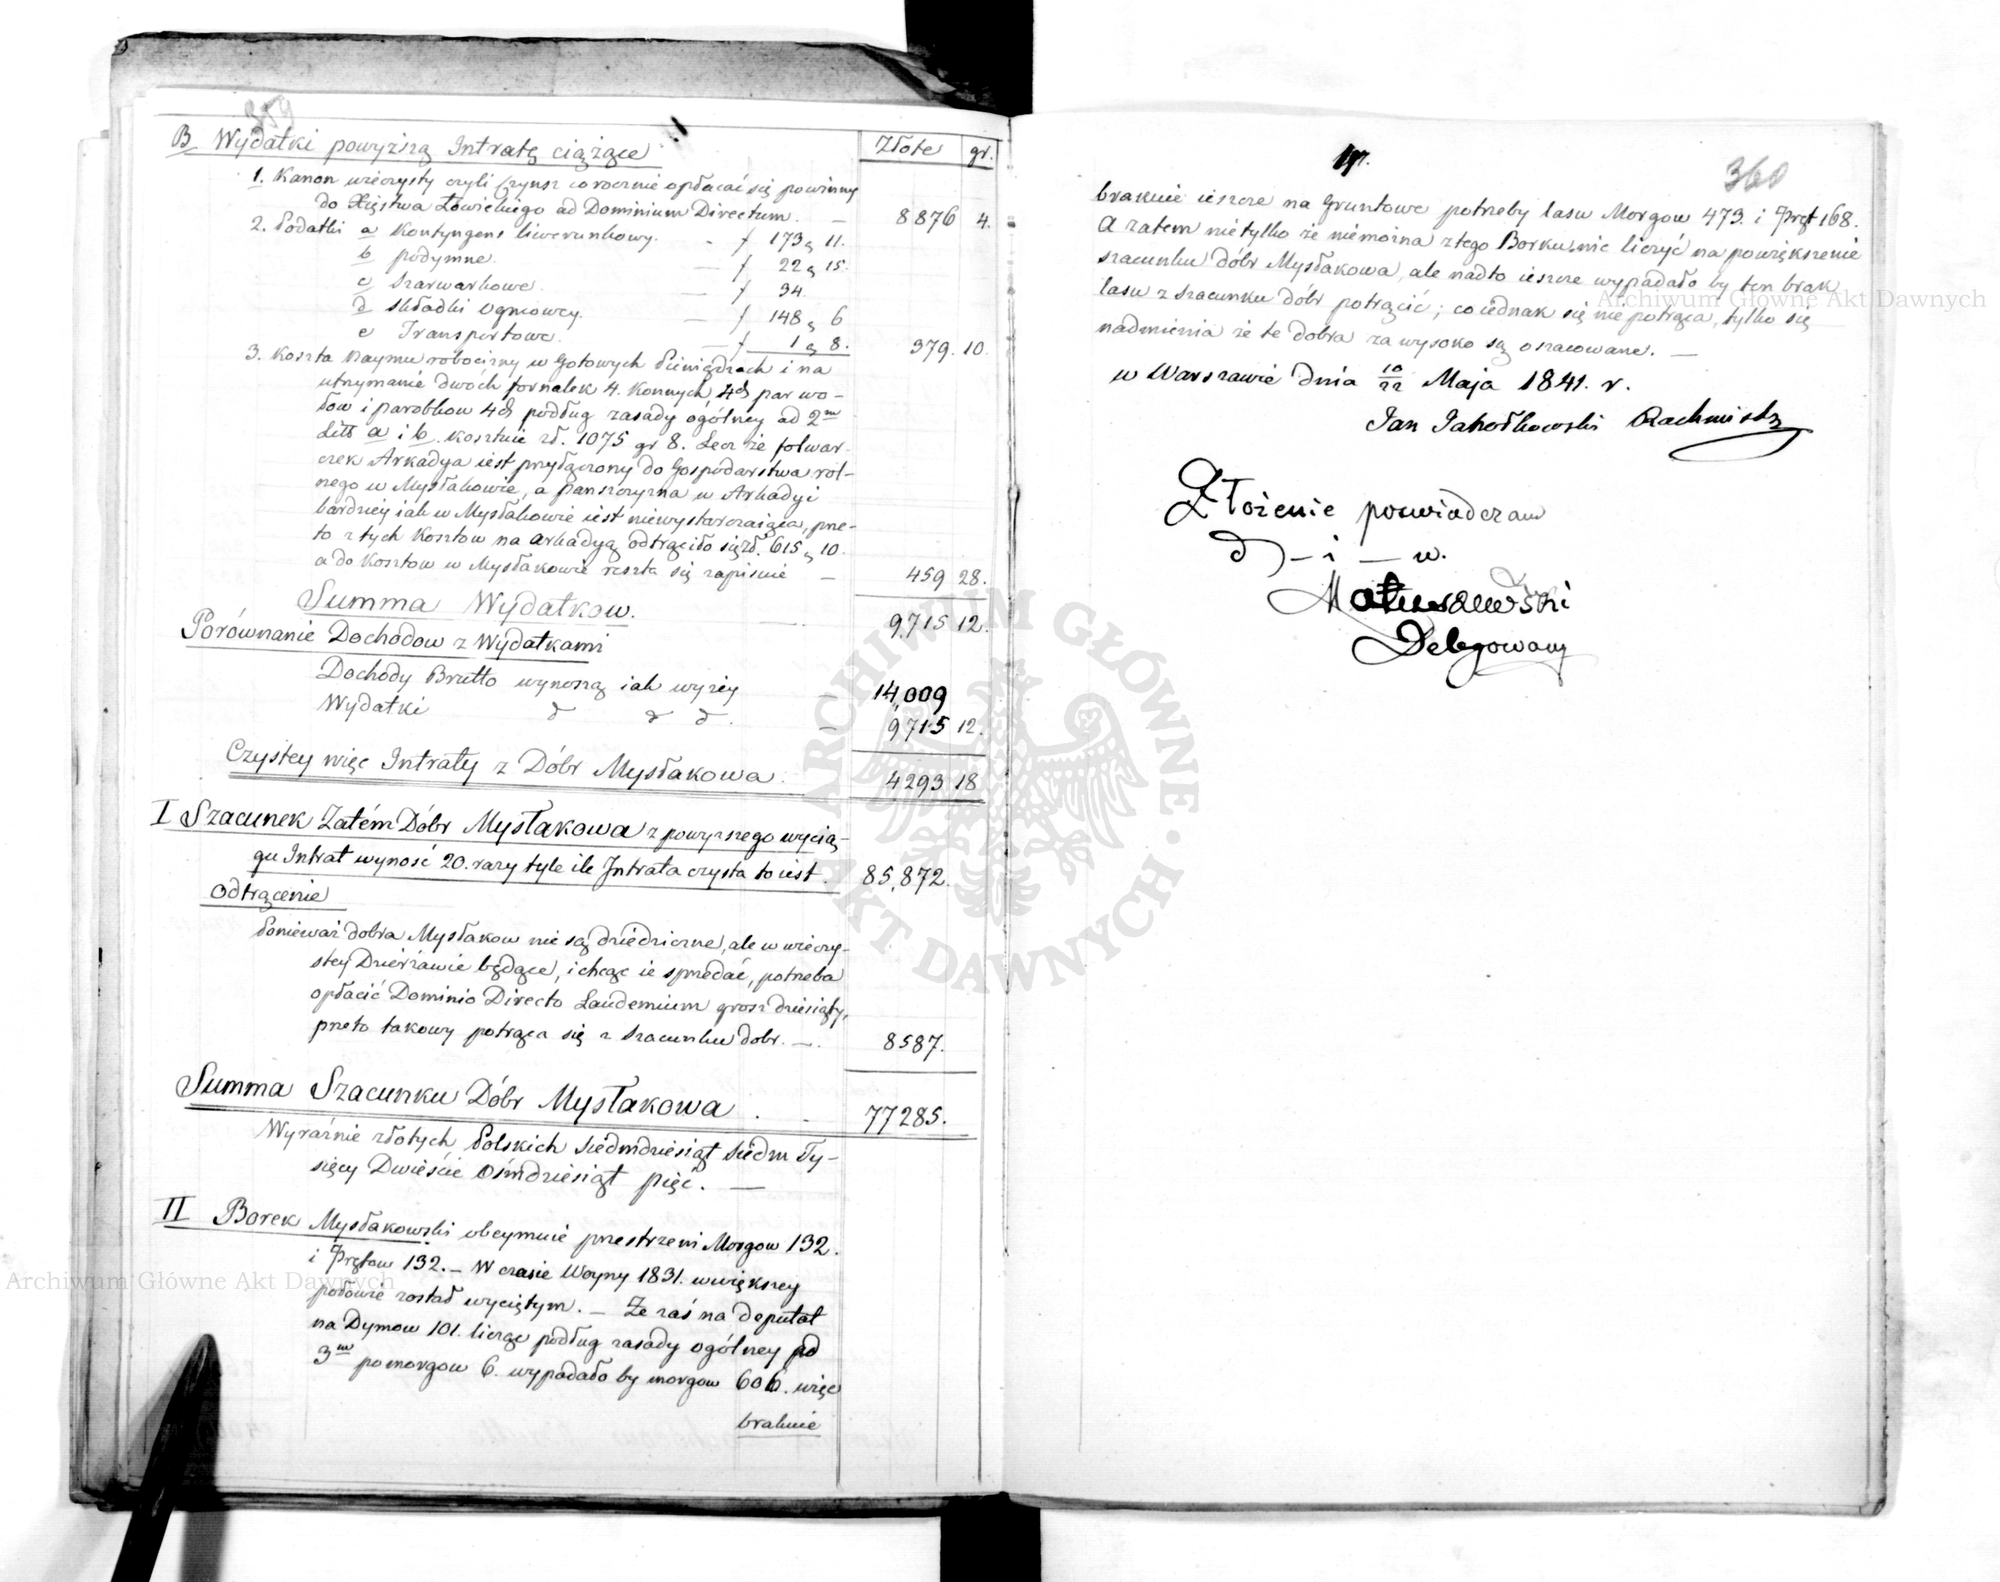 359
B Wydatki powyższą Intratę ciążące
Złote gr.
1. Kanon wieczysty czyli Czynsz corocznie opłacać się powinny
do Xięstwa Łowickiego ad Dominium Directum. — 8876 4.
2. Podatki a Kontyngens liwerunkowy. f 173 „ 11.
b podymne. — f 22 „ 15.
c Szarwarkowe. — f 34.
d składki ogniowey. — f 148 „ 6
e Transportowe. — f 1 „ 8. 379. 10.
3. Koszta Naymu robocizny w Gotowych Pieniądzach i na
utrzymanie dwóch fornalek 4. Konnych, 4ch par wo-
łow i parobkow 4ch podług zasady ogólney ad 2m
Litt a i b. kosztuie zł. 1075 gr 8. Lecz że folwar-
czek Arkadya iest przyłączony do Gospodarstwa rol-
nego w Mysłakowie, a panszczyzna w Arkadyi
bardziey iak w Mysłakowie iest niewystarczaiąca, prze-
to z tych Kosztow na Arkadyą odtrąciło się zł. 615 „ 10.
a do Kosztow w Mysłakowie reszta się zapisuie — 459 28.
Summa Wydatkow. 9,715 12.
Porównanie Dochodow z Wydatkami
Dochody Brutto wynoszą iak wyżey — 14,009
Wydatki d d d. — 9,715 12.
Czystey więc Intraty z Dóbr Mysłakowa. 4293 18
I Szacunek Zatém Dóbr Mysłakowa z powyższego wycią-
gu Intrat wynosć 20. razy tyle ile Intrata czysta to iest. 85,872.
Odtrącenie
Ponieważ dobra Mysłakow nie są dziedziczne, ale w wieczy-
stey Dzierżawie będące, i chcąc ie sprzedać, potrzeba
opłacić Dominio Directo Laudemium grosz dziesiąty,
przeto takowy potrąca się z szacunku dobr. — 8587.
Summa Szacunku Dóbr Mysłakowa. 77285.
Wyraźnie złotych Polskich siedmdziesiąt siedm Ty-
sięcy Dwieście Ośmdziesiąt pięć. —
II Borek Mysłakowski obeymuie przestrzeni Morgow 132.
i Prętow 132. — W czasie Woyny 1831. w większey
połowie został wyciętym. — Ze zaś na deputat
na Dymow 101. licząc podług zasady ogólney ad
3m po morgow 6. wypadało by morgow 606. więc
braknie
360
braknie ieszcze na Gruntowe potrzeby lasu Morgow 473. i Pręt 168.
A zatem nie tylko że niemożna z tego Borku nic liczyć na powiększenie
szacunku dóbr Mysłakowa, ale nadto ieszcze wypadało by ten brak
lasu z szacunku dóbr potrącić; co iednak się nie potrąca, tylko się
nadmienia że te dobra za wysoko są oszacowane. —
w Warszawie dnia 10/22 Maja 1841. r.
Jan Jakołkowski Rachmistrz
Złożenie poswiadczam
d — i — w.
Matuszewski
Delegowany
Archiwum Główne Akt Dawnych
Archiwum Główne Akt Dawnych
ARCHIWUM GŁÓWNE AKT DAWNYCH